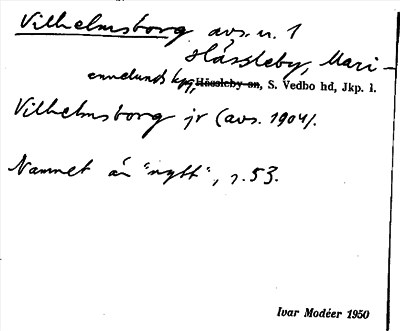 Vilhelmsborg avs. u. 1
Hässleby, Mari-
annelunds kpg, Hässleby sn, S. Vedbo hd, Jkp. l.
Vilhelmsborg jr (avs. 1904).
Namnet är "nytt", s. 53.
Ivar Modéer 1950